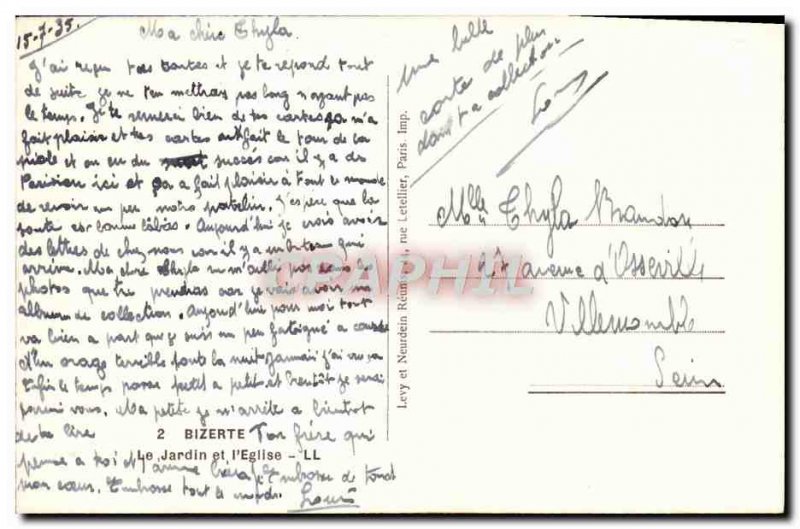 15-7-35.
Ma chère Thyla.
J'ai reçu tes cartes et je te répond tout
de suite je ne t'en mettrais pas long n'ayant pas
le temps. Je te remerci bien de tes cartes ça m'a
fait plaisir et tes cartes ont fait le tour de la
piole et on eu du succés car il y a des
Parisien ici et ça a fait plaisir à tout le monde
de revoir un peu notre patelin. J'espère que la
santé est bonne
Aujourd'hui je crois avoir
des lettres de chez nous car il y a un bateau qui
arrive. Ma chère Thyla
pas
les
photos que tu prendras car je vais avoir un
album de collection. Aujourd'hui pour moi tout
va bien a part que je suis un peu fatigué a cause
d'un orage terrible toute la nuit jamais j'ai vu ça
Enfin le temps passe petit a petit et bientôt je serai
parmi vous. Ma petite je m'arrête a bientôt
de te lire
Ton frère qui
pense a toi et t'aime
t'embrasse de tout
mon cœur. Embrasse tout le monde. Louis
2 BIZERTE
Le Jardin et l'Eglise - LL
Levy et Neurdein Réunis, rue Letellier, Paris Imp.
CARAPHIL
une belle
carte de plus
dans ta collection
Louis
Mlle Thyla Brandon
avenue d'Osseville
Villemomble
Seine